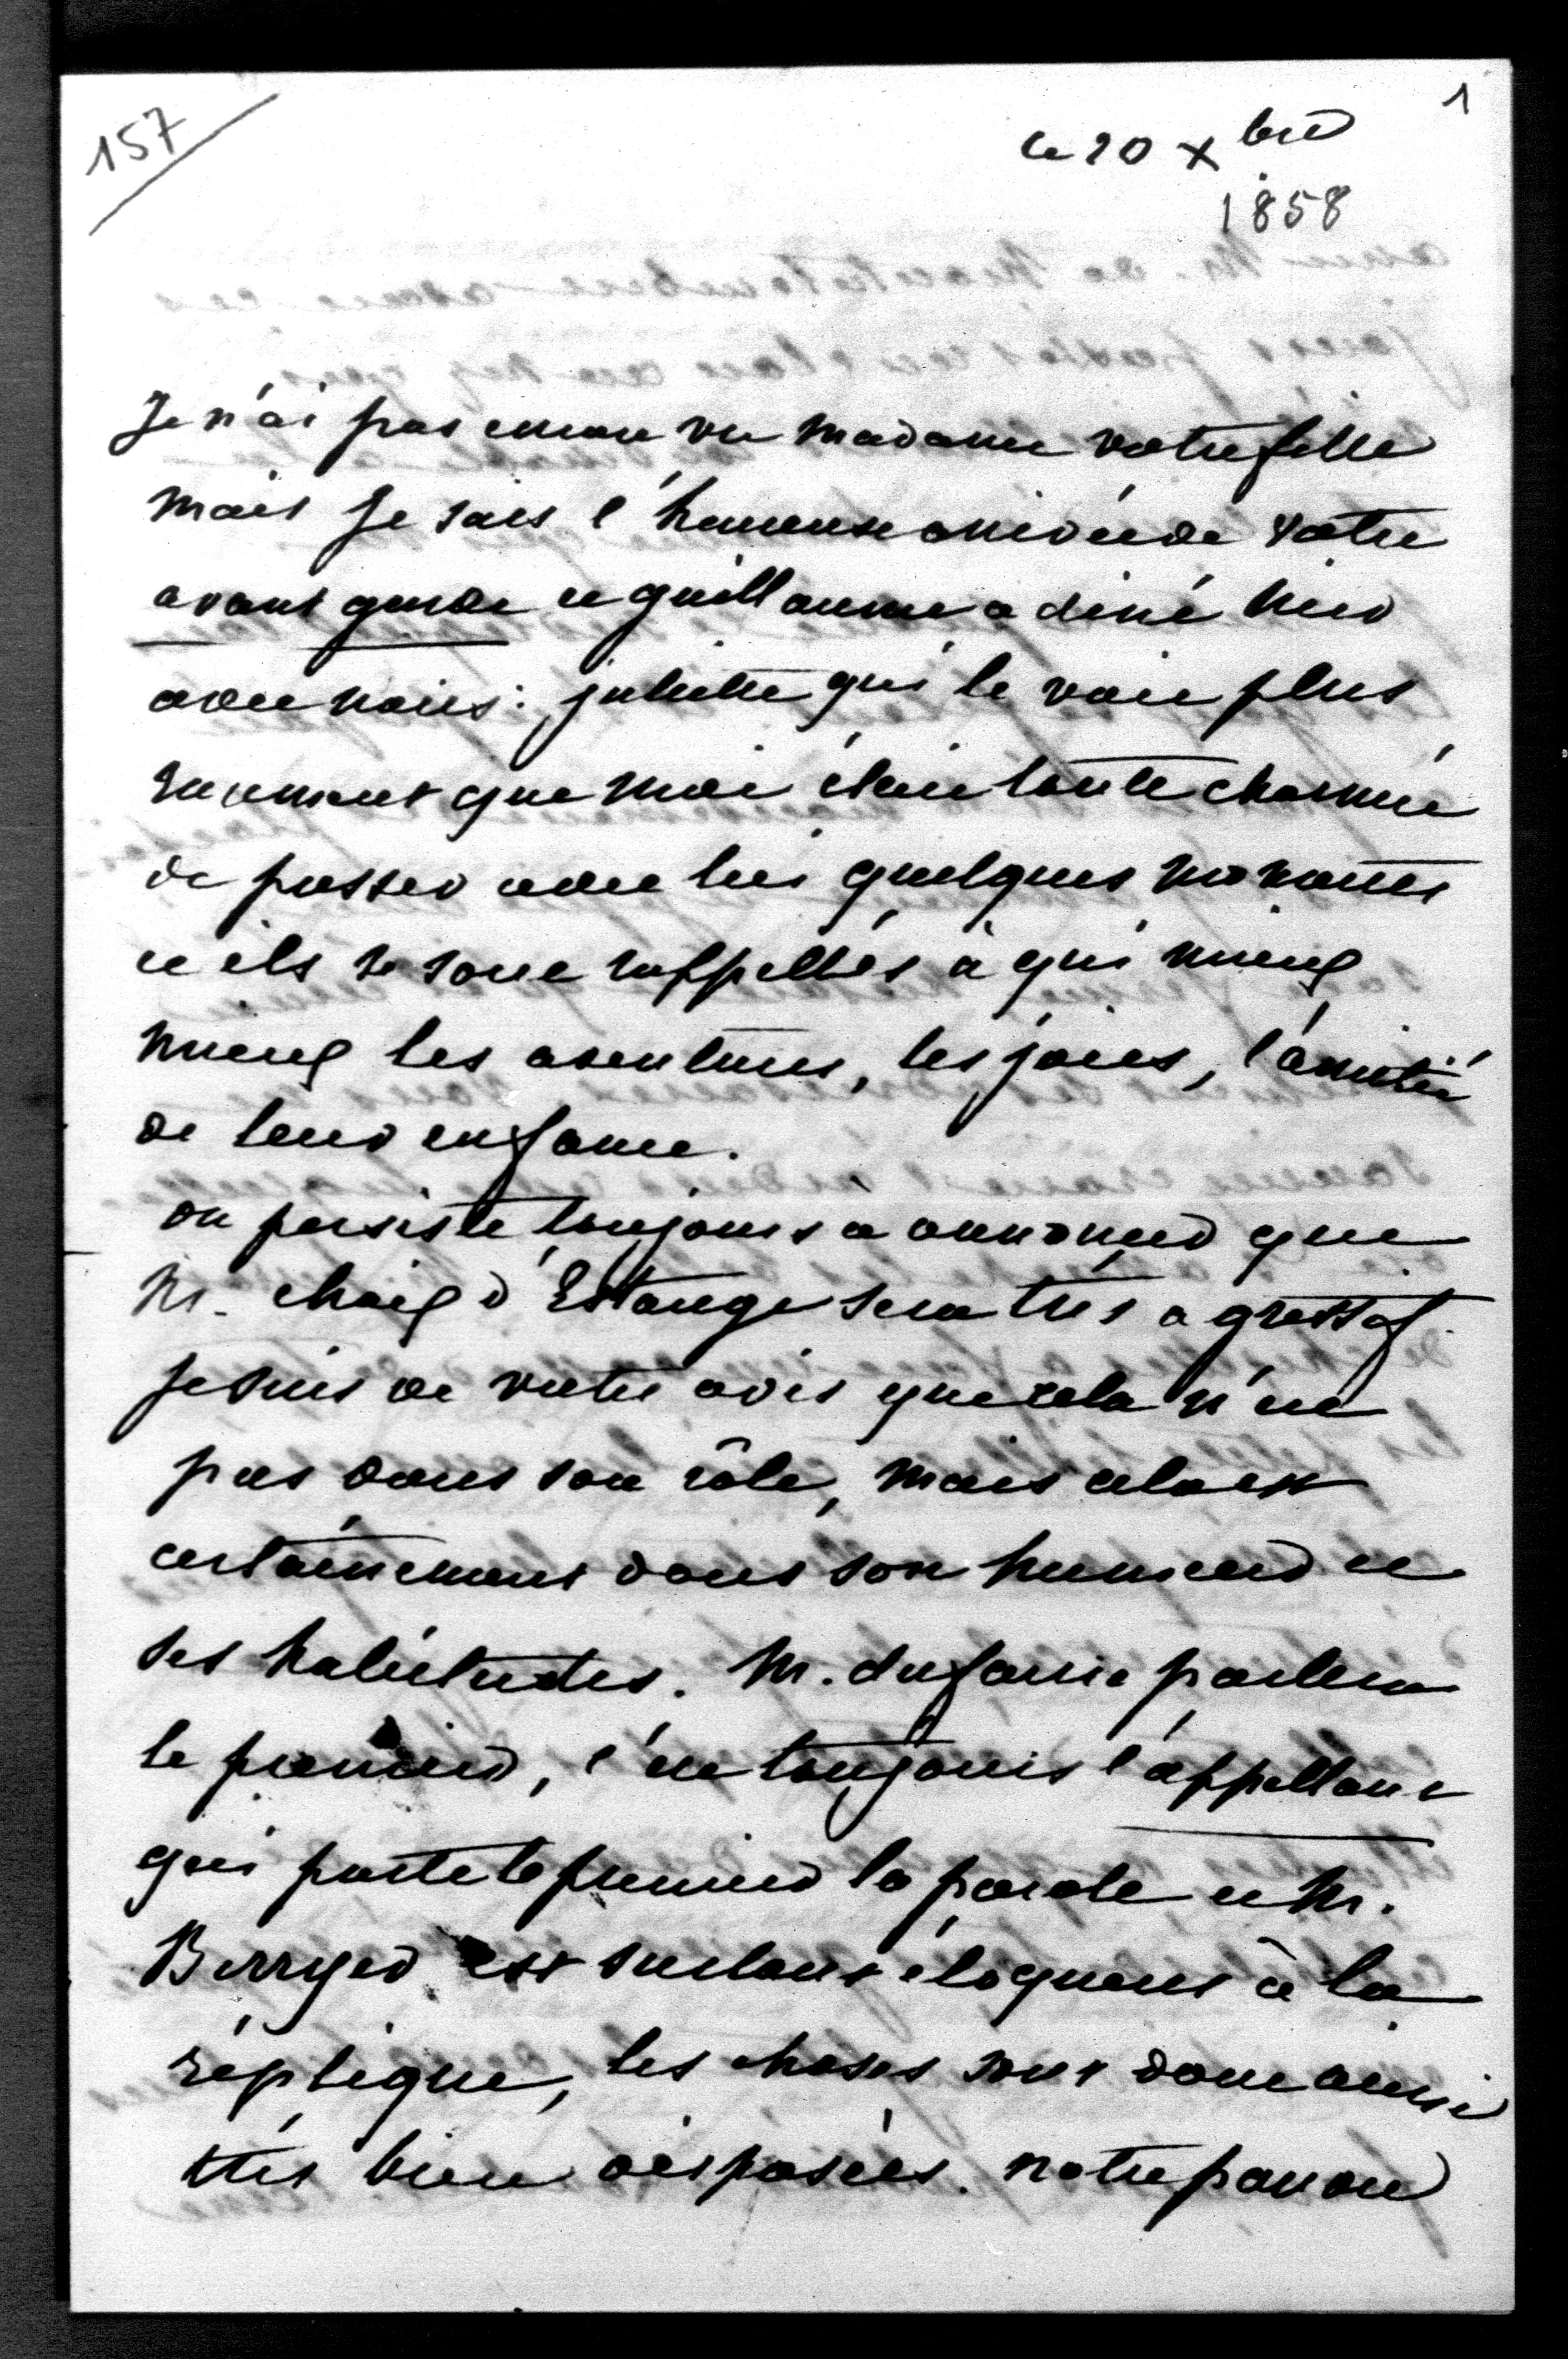 157
1
Ce 20 Xbre
1858
Je n'ai pas encore vu Madame votre fille
mais je sais l'heureuse arrivée de votre
avant garde et guillaume a diné hier
avec nous : juliette qui le voit plus
rarement que moi était toute charmée
de passer avec lui quelques moments
et ils se sont rappellés à qui mieux
mieux les aventures, les joies, l'amitié
de leur enfance.
on persiste toujours à annoncer que
Mr. chaix d'Estange sera très agressif.
Je suis de votre avis que cela n'est
pas dans son rôle, mais cela est
certainement dans son humeur et
ses habitudes. Mr. dufaure parlera
le premier, c'est toujours l'appellant
qui porte le premier la parole et Mr.
Berryer est surtout éloquent à la
réplique, les choses sont donc ainsi
très bien disposées. notre pauvre